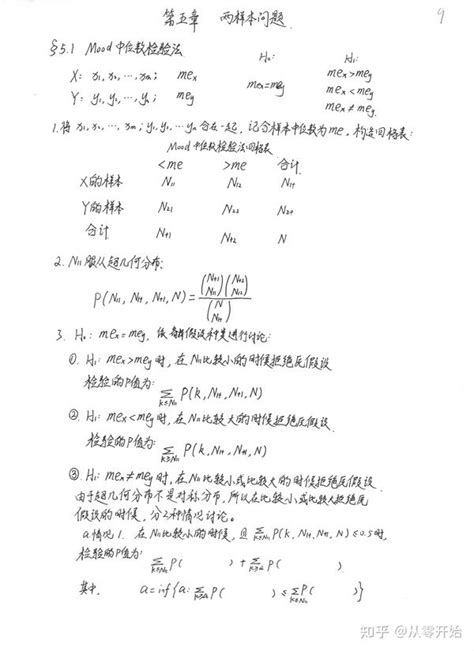 第五章 两样本问题.
9
§5.1 Mood中位数检验法
H₀: H₁:
X: x₁, x₂, ⋯, xₘ; meₓ meₓ=me_y meₓ > me_y
Y: y₁, y₂, ⋯, yₙ; me_y meₓ < me_y
meₓ ≠ me_y
1. 将 x₁, x₂, ⋯, xₘ; y₁, y₂, ⋯ yₙ 合在一起, 记合样本中位数为me. 构造四格表:
Mood中位数检验法四格表
<me >me 合计
X的样本 N₁₁ N₁₂ N₁₊
Y的样本 N₂₁ N₂₂ N₂₊
合计 N₊₁ N₊₂ N
2. N₁₁服从超几何分布:
P(N₁₁, N₁₊, N₊₁, N) = (N₊₁ N₁₁)(N₊₂ N₁₂) / (N N₁₊)
3. H₀: meₓ = me_y, 假设种类进行讨论:
①. H₁: meₓ > me_y 时, 在N₁₁比较小的时候拒绝原假设
检验的P值为: ∑k≤N₁₁ P(k, N₁₊, N₊₁, N)
② H₁: meₓ < me_y 时, 在N₁₁比较大的时候拒绝原假设.
检验的P值为: ∑k≥N₁₁ P(k, N₁₊, N₊₁, N)
③ H₁: meₓ ≠ me_y 时, 在N₁₁比较小或比较大的时候拒绝原假设.
由于超几何分布不是对称分布, 所以在比较小或比较大拒绝原
假设的时候, 分2种情况讨论。
a情况1. 在N₁₁比较小的时候, 且 ∑k≤N₁₁ P(k, N₁₊, N₊₁, N) ≤ 0.5时,
检验的P值为:
∑k≤N₁₁ P( ) + ∑k≥a P( )
其中. a = inf{a: ∑k≥a P( ) ≤ ∑k≤N₁₁ P( )}
知乎 @从零开始